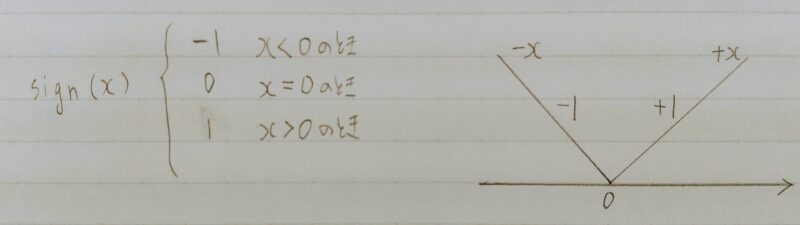 sign(x) { -1 x<0のとき
0 x=0のとき
1 x>0のとき
-x +x
-1 +1
0